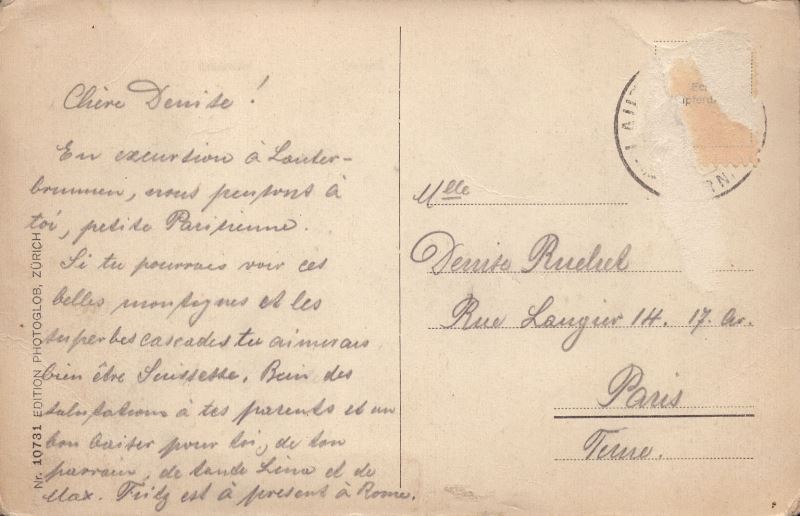 Chère Denise !
En excursion à Lauter-
brunnen, nous pensons à
toi, petite Parisienne.
Si tu pourrais voir ces
belles montagnes et les
superbes cascades tu aimerais
bien être Suissesse. Bien des
salutations à tes parents et un
bon baiser pour toi, de ton
parrain, de tante Lina et de
Max. Fritz est à présent à Rome.
Nr. 10731 EDITION PHOTOGLOB, ZÜRICH
Mlle
Denise Ruchet
Rue Laugier 14. 17. Ar.
Paris